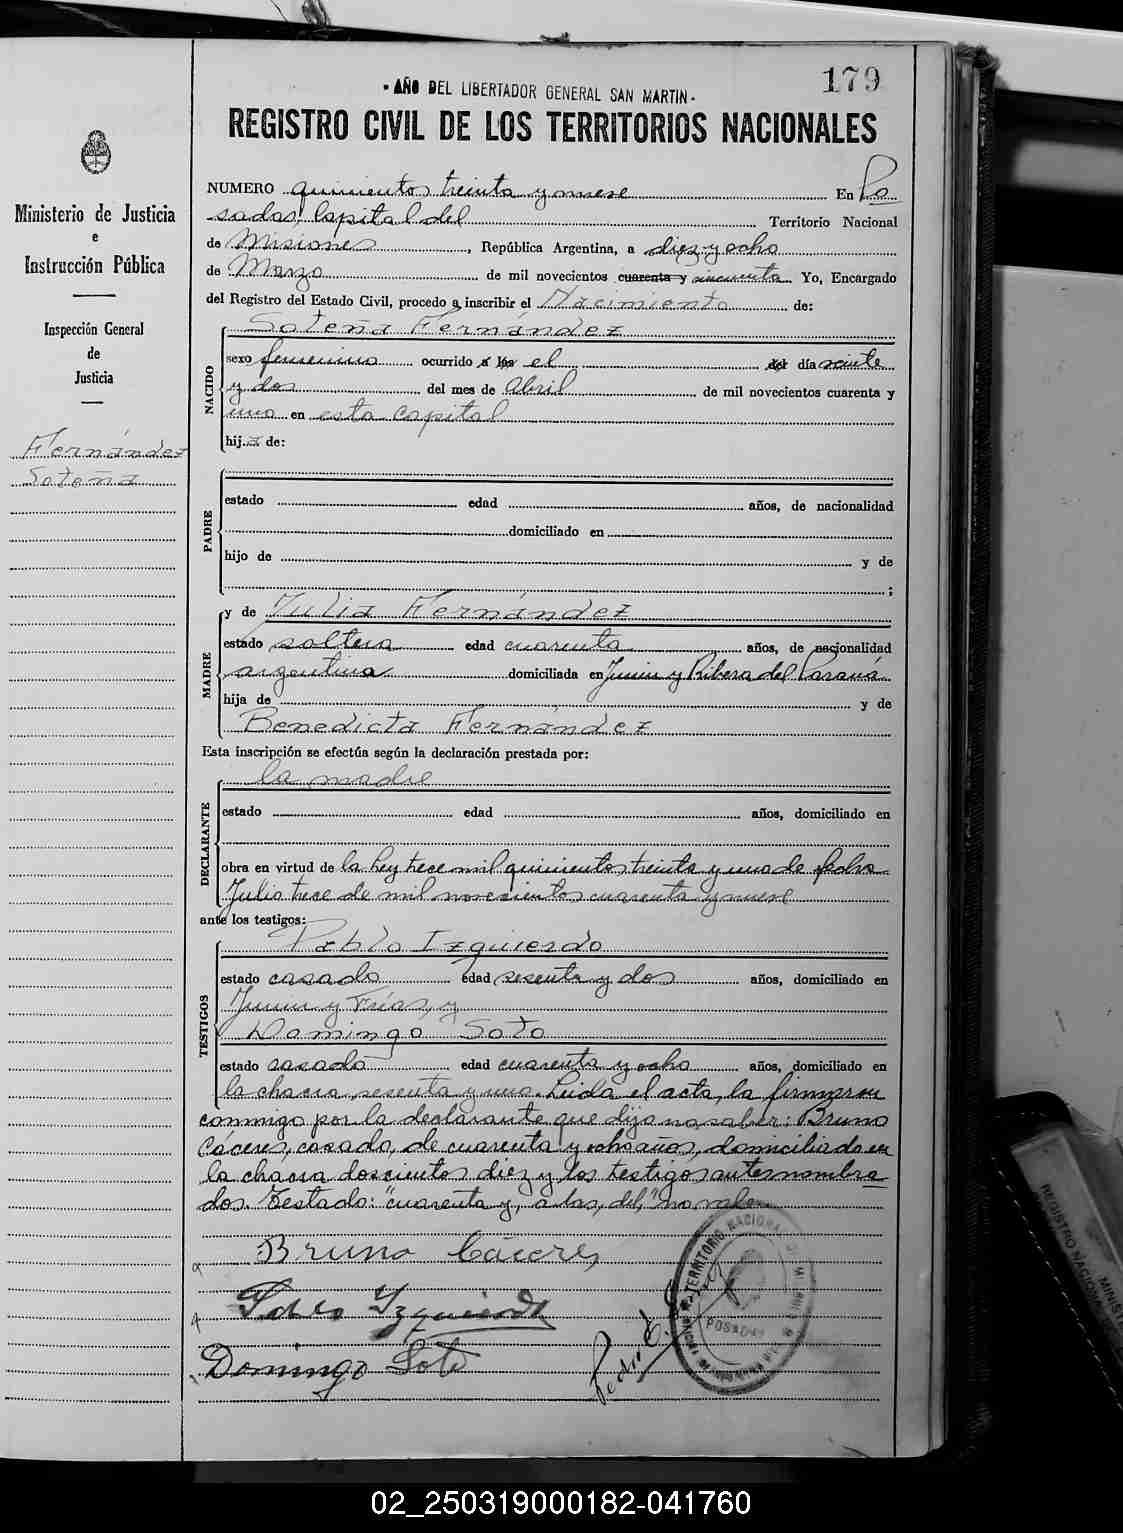 179
• AÑO DEL LIBERTADOR GENERAL SAN MARTIN •
REGISTRO CIVIL DE LOS TERRITORIOS NACIONALES
Ministerio de Justicia
e
Instrucción Pública
Inspección General
de
Justicia
Fernández
Soteña
NUMERO quinientos treinta y nueve En Po
sadas, Capital del Territorio Nacional
de Misiones, República Argentina, a diez y ocho
de Marzo de mil novecientos cuarenta y cincuenta. Yo, Encargado
del Registro del Estado Civil, procedo a inscribir el Nacimiento de:
NACIDO
Soteña Fernández
sexo femenino ocurrido a las el del día veinte
y dos del mes de Abril de mil novecientos cuarenta y
uno en esta capital
hija de:
PADRE
estado edad años, de nacionalidad
domiciliado en
hijo de y de
;
MADRE
y de Julia Fernández
estado soltera edad cuarenta años, de nacionalidad
argentina domiciliada en Junin y Ribera del Paraná
hija de y de
Benedicta Fernández
Esta inscripción se efectúa según la declaración prestada por:
DECLARANTE
la madre
estado edad años, domiciliado en
obra en virtud de la ley trece mil quinientos treinta y uno de fecha
Julio trece de mil novecientos cuarenta y nueve
ante los testigos:
TESTIGOS
Pablo Izquierdo
estado casado edad sesenta y dos años, domiciliado en
Junin y Frías, y
Domingo Soto
estado casado edad cuarenta y ocho años, domiciliado en
la chacra sesenta y uno. Leida el acta, la firmaron
conmigo por la declarante que dijo no saber: Bruno
Cáceres, casado, de cuarenta y ocho años, domiciliado en
la chacra doscientos diez y los testigos antes nombra
dos. Testado: "cuarenta y, a las, del," no vale.
Bruno Cáceres
Pablo Izquierdo
Domingo Soto
Pedro E.
TERRITORIO NACIONAL DE MISIONES
POSADAS
REGISTRO NACIONAL
MINIST
02_250319000182-041760